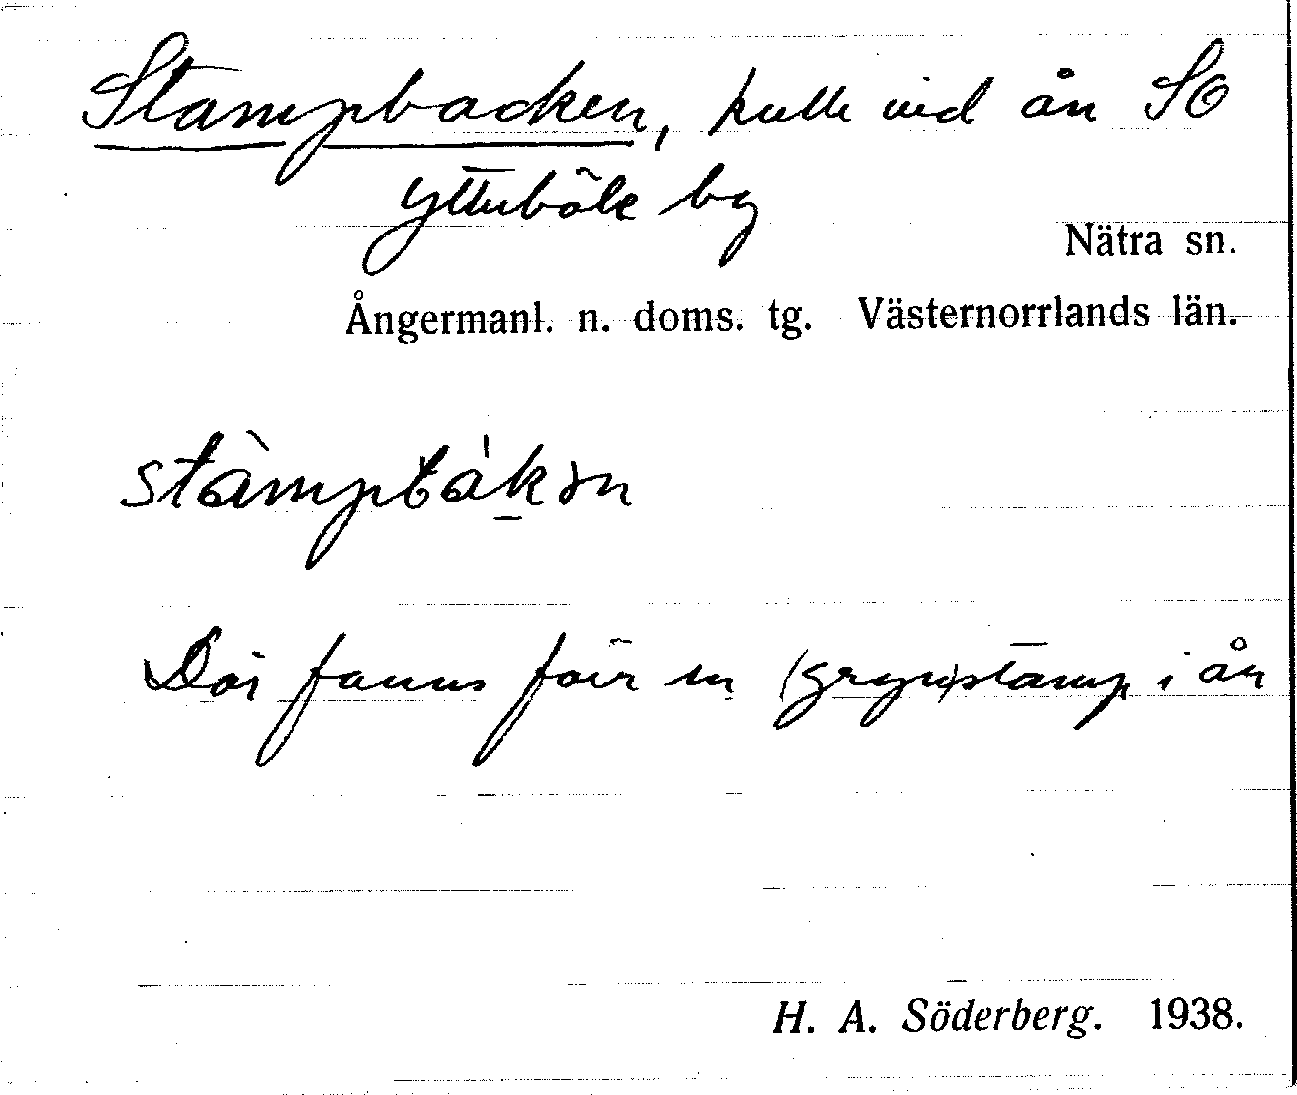 Stampbacken, kulle vid ån SO
Ytterböle by
Nätra sn.
Ångermanl. n. doms. tg. Västernorrlands län.
stàmpbák̠ən
Där fanns förr en (gryn)stamp i ån
H. A. Söderberg. 1938.